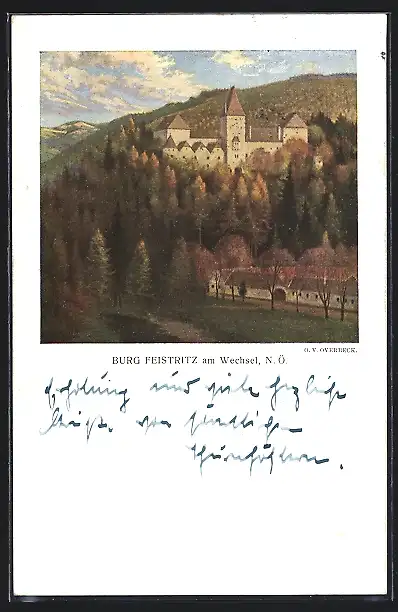 G. V. OVERBECK.
BURG FEISTRITZ am Wechsel, N. Ö.
Erholung und viele herzliche
Grüße. von sämtlichen